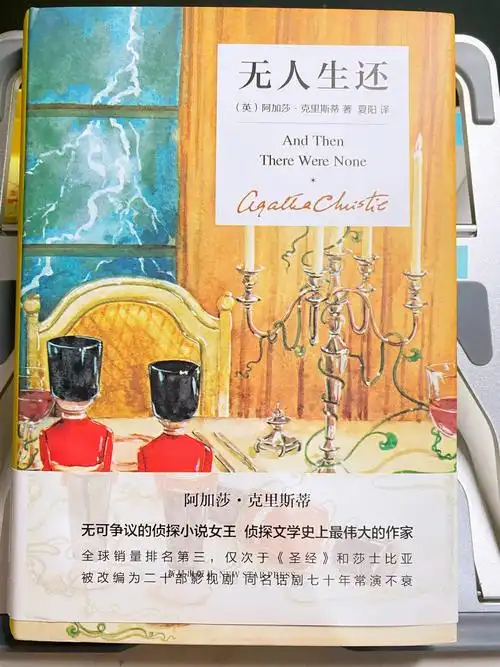 无人生还
(英)阿加莎·克里斯蒂 著 夏阳 译
And Then
There Were None
Agatha Christie
阿加莎·克里斯蒂
无可争议的侦探小说女王 侦探文学史上最伟大的作家
全球销量排名第三,仅次于《圣经》和莎士比亚
被改编为二十部影视剧 同名话剧七十年常演不衰